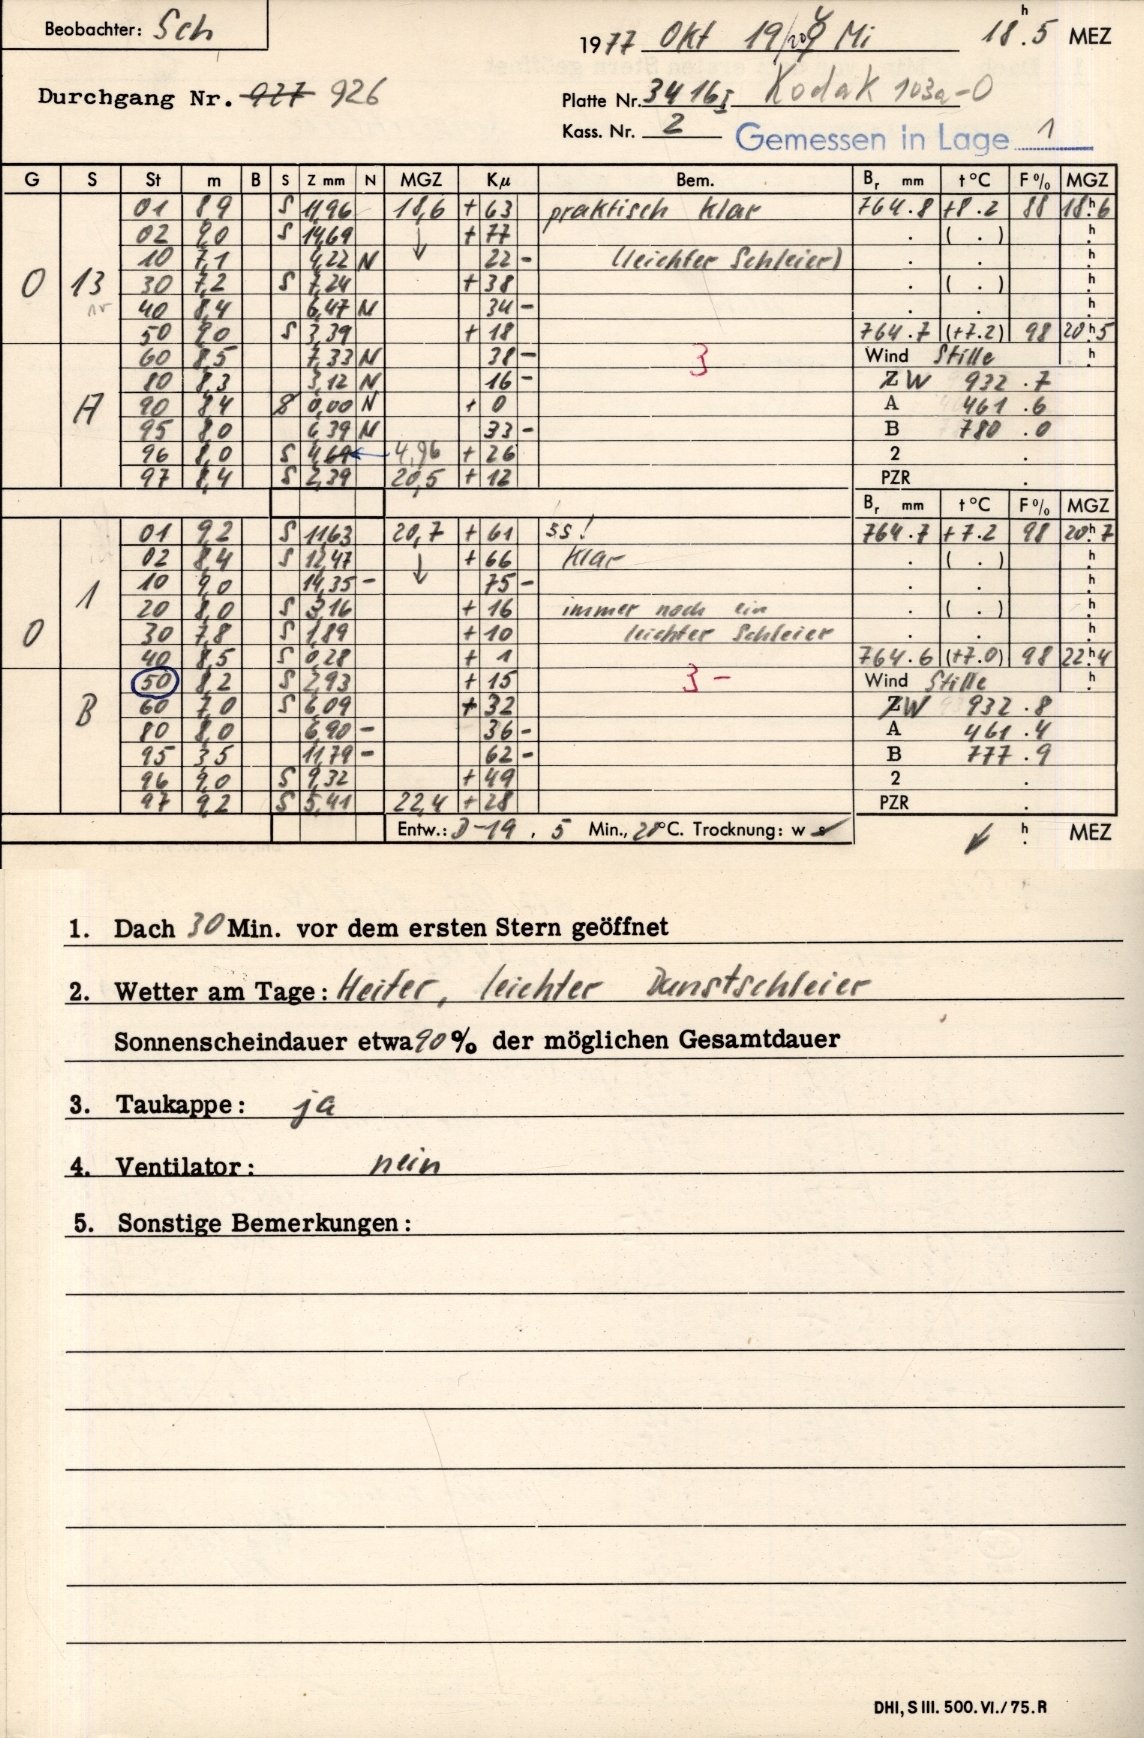 Beobachter: Sch
1977 Okt 19/20 Mi 18h.5 MEZ
Durchgang Nr. 927 926
Platte Nr. 3416I Kodak 103a-O
Kass. Nr. 2 Gemessen in Lage 1
G S St m B S Z mm N MGZ Kμ Bem. Br mm t°C F% MGZ
01 8,9 S 11,96 18,6 +63 praktisch klar 764.8 +8.2 88 18h.6
02 9,0 S 14,69 ↓ +77 . ( . ) h.
10 7,1 4,22 N 22- (leichter Schleier) . . h.
0 13 30 7,2 S 7,24 +38 . ( . ) h.
40 8,4 6,47 N 34- . . h.
50 9,0 S 3,39 +18 764.7 (+7.2) 98 20h5
60 8,5 7,33 N 38- 3 Wind Stille h.
80 8,3 3,12 N 16- ZW 932.7
A 90 8,4 S 0,00 N +0 A 461.6
95 8,0 6,39 N 33- B 780.0
96 8,0 S 4,69 ← 4,96 +26 2 .
97 8,4 S 2,39 20,5 +12 PZR .
Br mm t°C F% MGZ
01 9,2 S 11,63 20,7 +61 ss! 764.7 +7.2 98 20h7
02 8,4 S 12,47 ↓ +66 klar . ( . ) h.
1 10 9,0 14,35- 75- . . h.
20 8,0 S 3,16 +16 immer noch ein . ( . ) h.
0 30 7,8 S 1,89 +10 leichter Schleier . . h.
40 8,5 S 0,28 +1 764.6 (+7.0) 98 22h4
50 8,2 S 2,93 +15 3- Wind Stille h.
B 60 7,0 S 6,09 +32 ZW 932.8
80 8,0 6,90- 36- A 461.4
95 3,5 11,79- 62- B 777.9
96 9,0 S 9,32 +49 2 .
97 9,2 S 5,41 22,4 +28 PZR .
Entw.: D-19, 5 Min., 20°C. Trocknung: w s h. MEZ
1. Dach 30 Min. vor dem ersten Stern geöffnet
2. Wetter am Tage: Heiter, leichter Dunstschleier
Sonnenscheindauer etwa 90% der möglichen Gesamtdauer
3. Taukappe: ja
4. Ventilator: nein
5. Sonstige Bemerkungen:
DHI, S III. 500. VI./75. R